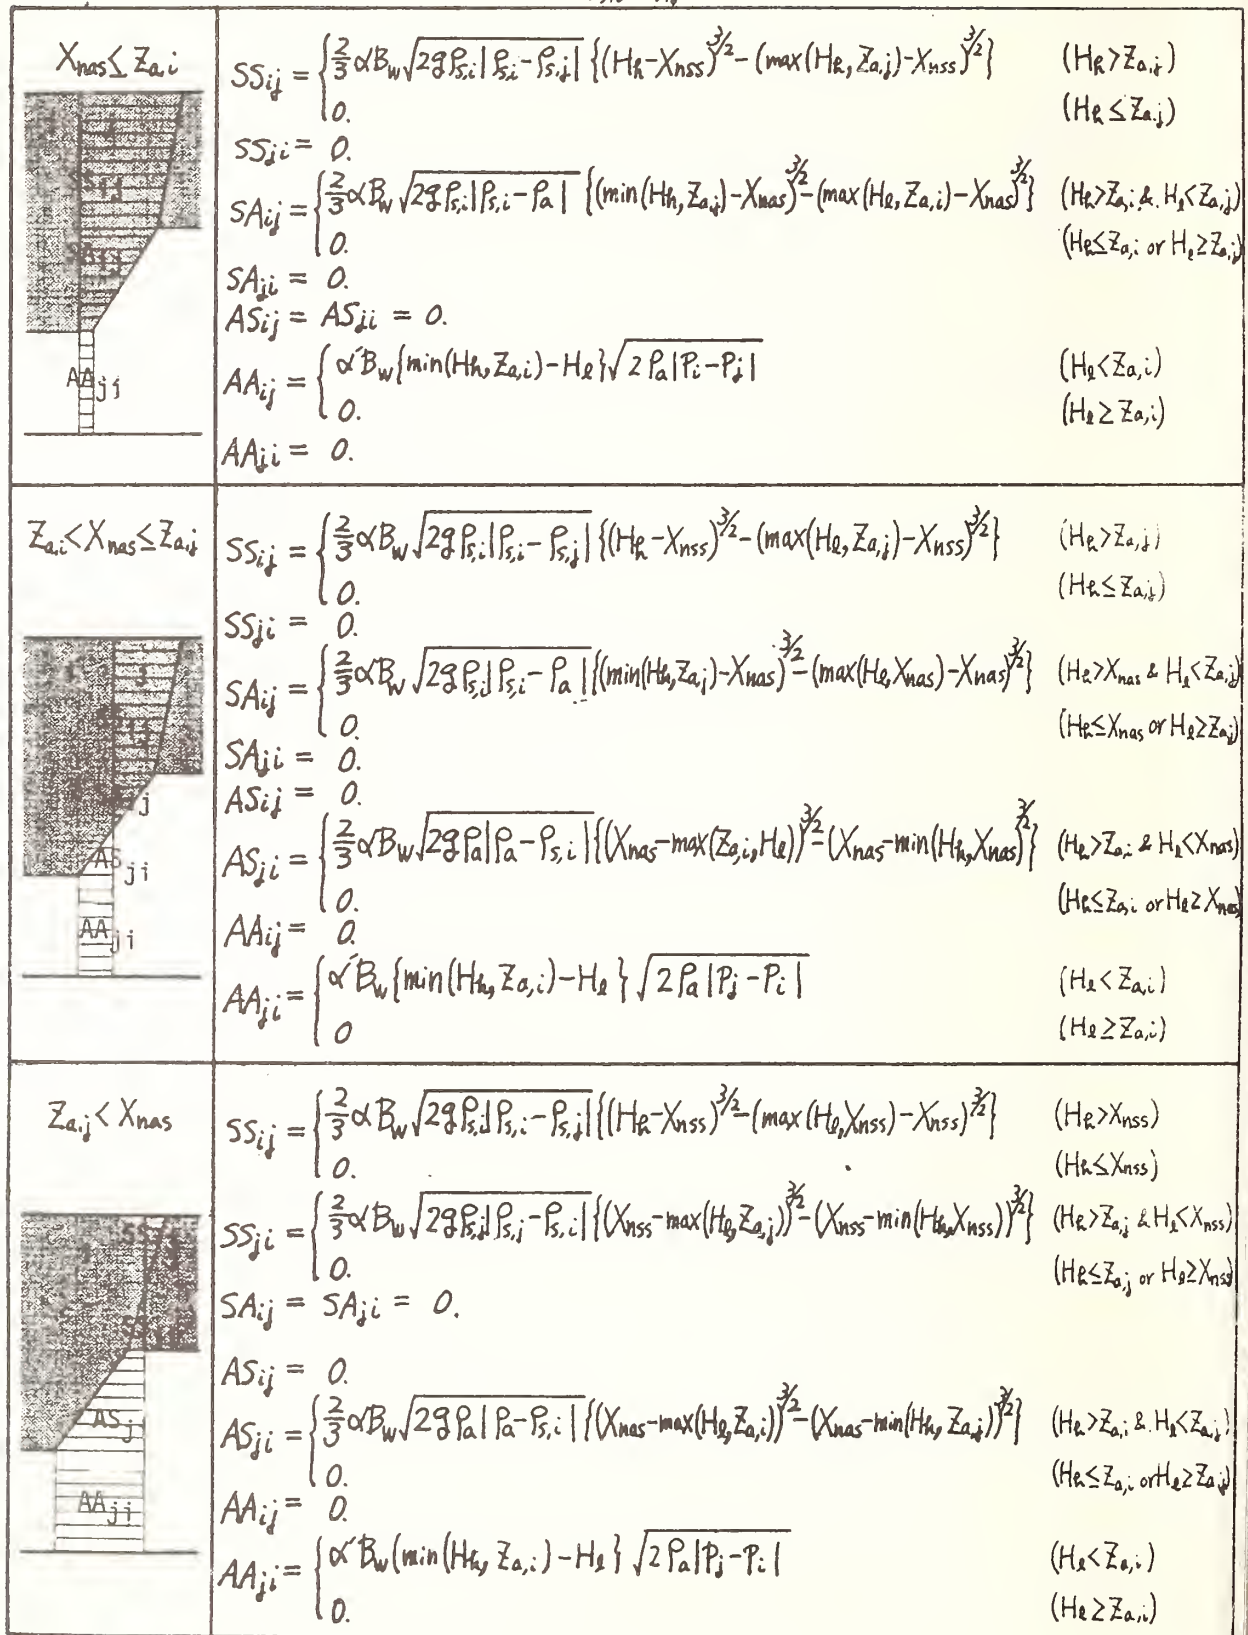 X_nas ≤ Z_a,i
SS_ij = { 2/3 αB_w √(2gρ_s,i|ρ_s,i − ρ_s,j|) {(H_h − X_nss)^3/2 − (max(H_ℓ, Z_a,j) − X_nss)^3/2} (H_h > Z_a,j)
0. (H_h ≤ Z_a,j)
SS_ji = 0.
SA_ij = { 2/3 αB_w √(2gρ_s,i|ρ_s,i − ρ_a|) {(min(H_h, Z_a,j) − X_nas)^3/2 − (max(H_ℓ, Z_a,i) − X_nas)^3/2} (H_h > Z_a,i & H_ℓ < Z_a,j)
0. (H_h ≤ Z_a,i or H_ℓ ≥ Z_a,j)
SA_ji = 0.
AS_ij = AS_ji = 0.
AA_ij = { αB_w {min(H_h, Z_a,i) − H_ℓ} √(2ρ_a|P_i − P_j|) (H_ℓ < Z_a,i)
0. (H_ℓ ≥ Z_a,i)
AA_ji = 0.
AA_ji
Z_a,i < X_nas ≤ Z_a,j
SS_ij = { 2/3 αB_w √(2gρ_s,i|ρ_s,i − ρ_s,j|) {(H_h − X_nss)^3/2 − (max(H_ℓ, Z_a,j) − X_nss)^3/2} (H_h > Z_a,j)
0. (H_h ≤ Z_a,j)
SS_ji = 0.
SA_ij = { 2/3 αB_w √(2gρ_s,i|ρ_s,i − ρ_a|) {(min(H_h, Z_a,j) − X_nas)^3/2 − (max(H_ℓ, X_nas) − X_nas)^3/2} (H_h > X_nas & H_ℓ < Z_a,j)
0. (H_h ≤ X_nas or H_ℓ ≥ Z_a,j)
SA_ji = 0.
AS_ij = 0.
AS_ji = { 2/3 αB_w √(2gρ_a|ρ_a − ρ_s,i|) {(X_nas − max(Z_a,i, H_ℓ))^3/2 − (X_nas − min(H_h, X_nas)^3/2} (H_h > Z_a,i & H_ℓ < X_nas)
0. (H_h ≤ Z_a,i or H_ℓ ≥ X_nas)
AA_ij = 0.
AA_ji = { αB_w {min(H_h, Z_a,i) − H_ℓ} √(2ρ_a|P_j − P_i|) (H_ℓ < Z_a,i)
0 (H_ℓ ≥ Z_a,i)
AS_ji
AA_ji
Z_a,j < X_nas
SS_ij = { 2/3 αB_w √(2gρ_s,i|ρ_s,i − ρ_s,j|) {(H_h − X_nss)^3/2 − (max(H_ℓ, X_nss) − X_nss)^3/2} (H_h > X_nss)
0. (H_h ≤ X_nss)
SS_ji = { 2/3 αB_w √(2gρ_s,j|ρ_s,j − ρ_s,i|) {(X_nss − max(H_ℓ, Z_a,j))^3/2 − (X_nss − min(H_h, X_nss))^3/2} (H_h > Z_a,j & H_ℓ < X_nss)
0. (H_h ≤ Z_a,j or H_ℓ ≥ X_nss)
SA_ij = SA_ji = 0.
AS_ij = 0.
AS_ji = { 2/3 αB_w √(2gρ_a|ρ_a − ρ_s,i|) {(X_nas − max(H_ℓ, Z_a,i))^3/2 − (X_nas − min(H_h, Z_a,j))^3/2} (H_h > Z_a,i & H_ℓ < Z_a,j)
0. (H_h ≤ Z_a,i or H_ℓ ≥ Z_a,j)
AA_ij = 0.
AA_ji = { αB_w (min(H_h, Z_a,i) − H_ℓ} √(2ρ_a|P_j − P_i|) (H_ℓ < Z_a,i)
0. (H_ℓ ≥ Z_a,i)
AS_j
AA_ji